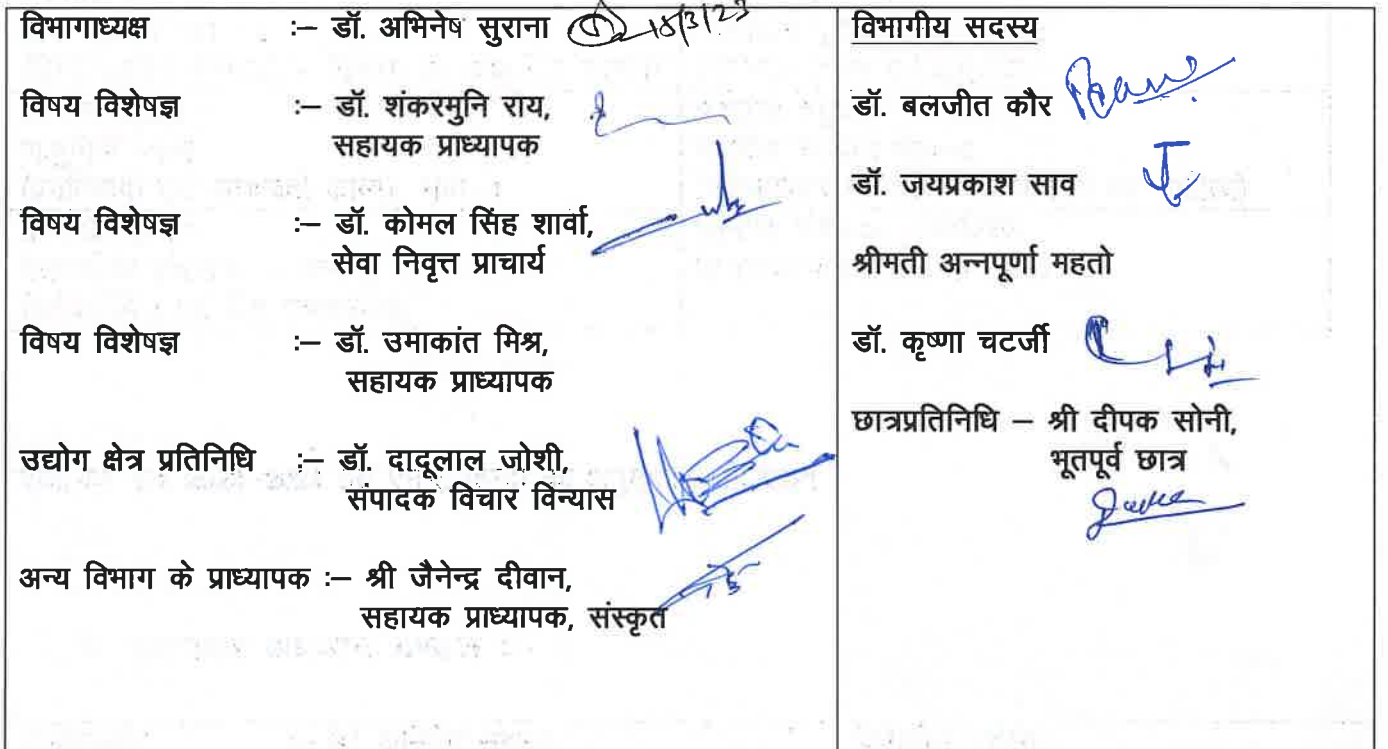 विभागाध्यक्ष :– डॉ. अभिनेष सुराना 18/3/23
विषय विशेषज्ञ :– डॉ. शंकरमुनि राय,
सहायक प्राध्यापक
विषय विशेषज्ञ :– डॉ. कोमल सिंह शार्वा,
सेवा निवृत्त प्राचार्य
विषय विशेषज्ञ :– डॉ. उमाकांत मिश्र,
सहायक प्राध्यापक
उद्योग क्षेत्र प्रतिनिधि :– डॉ. दादूलाल जोशी,
संपादक विचार विन्यास
अन्य विभाग के प्राध्यापक :– श्री जैनेन्द्र दीवान,
सहायक प्राध्यापक, संस्कृत
विभागीय सदस्य
डॉ. बलजीत कौर
डॉ. जयप्रकाश साव
श्रीमती अन्नपूर्णा महतो
डॉ. कृष्णा चटर्जी
छात्रप्रतिनिधि – श्री दीपक सोनी,
भूतपूर्व छात्र